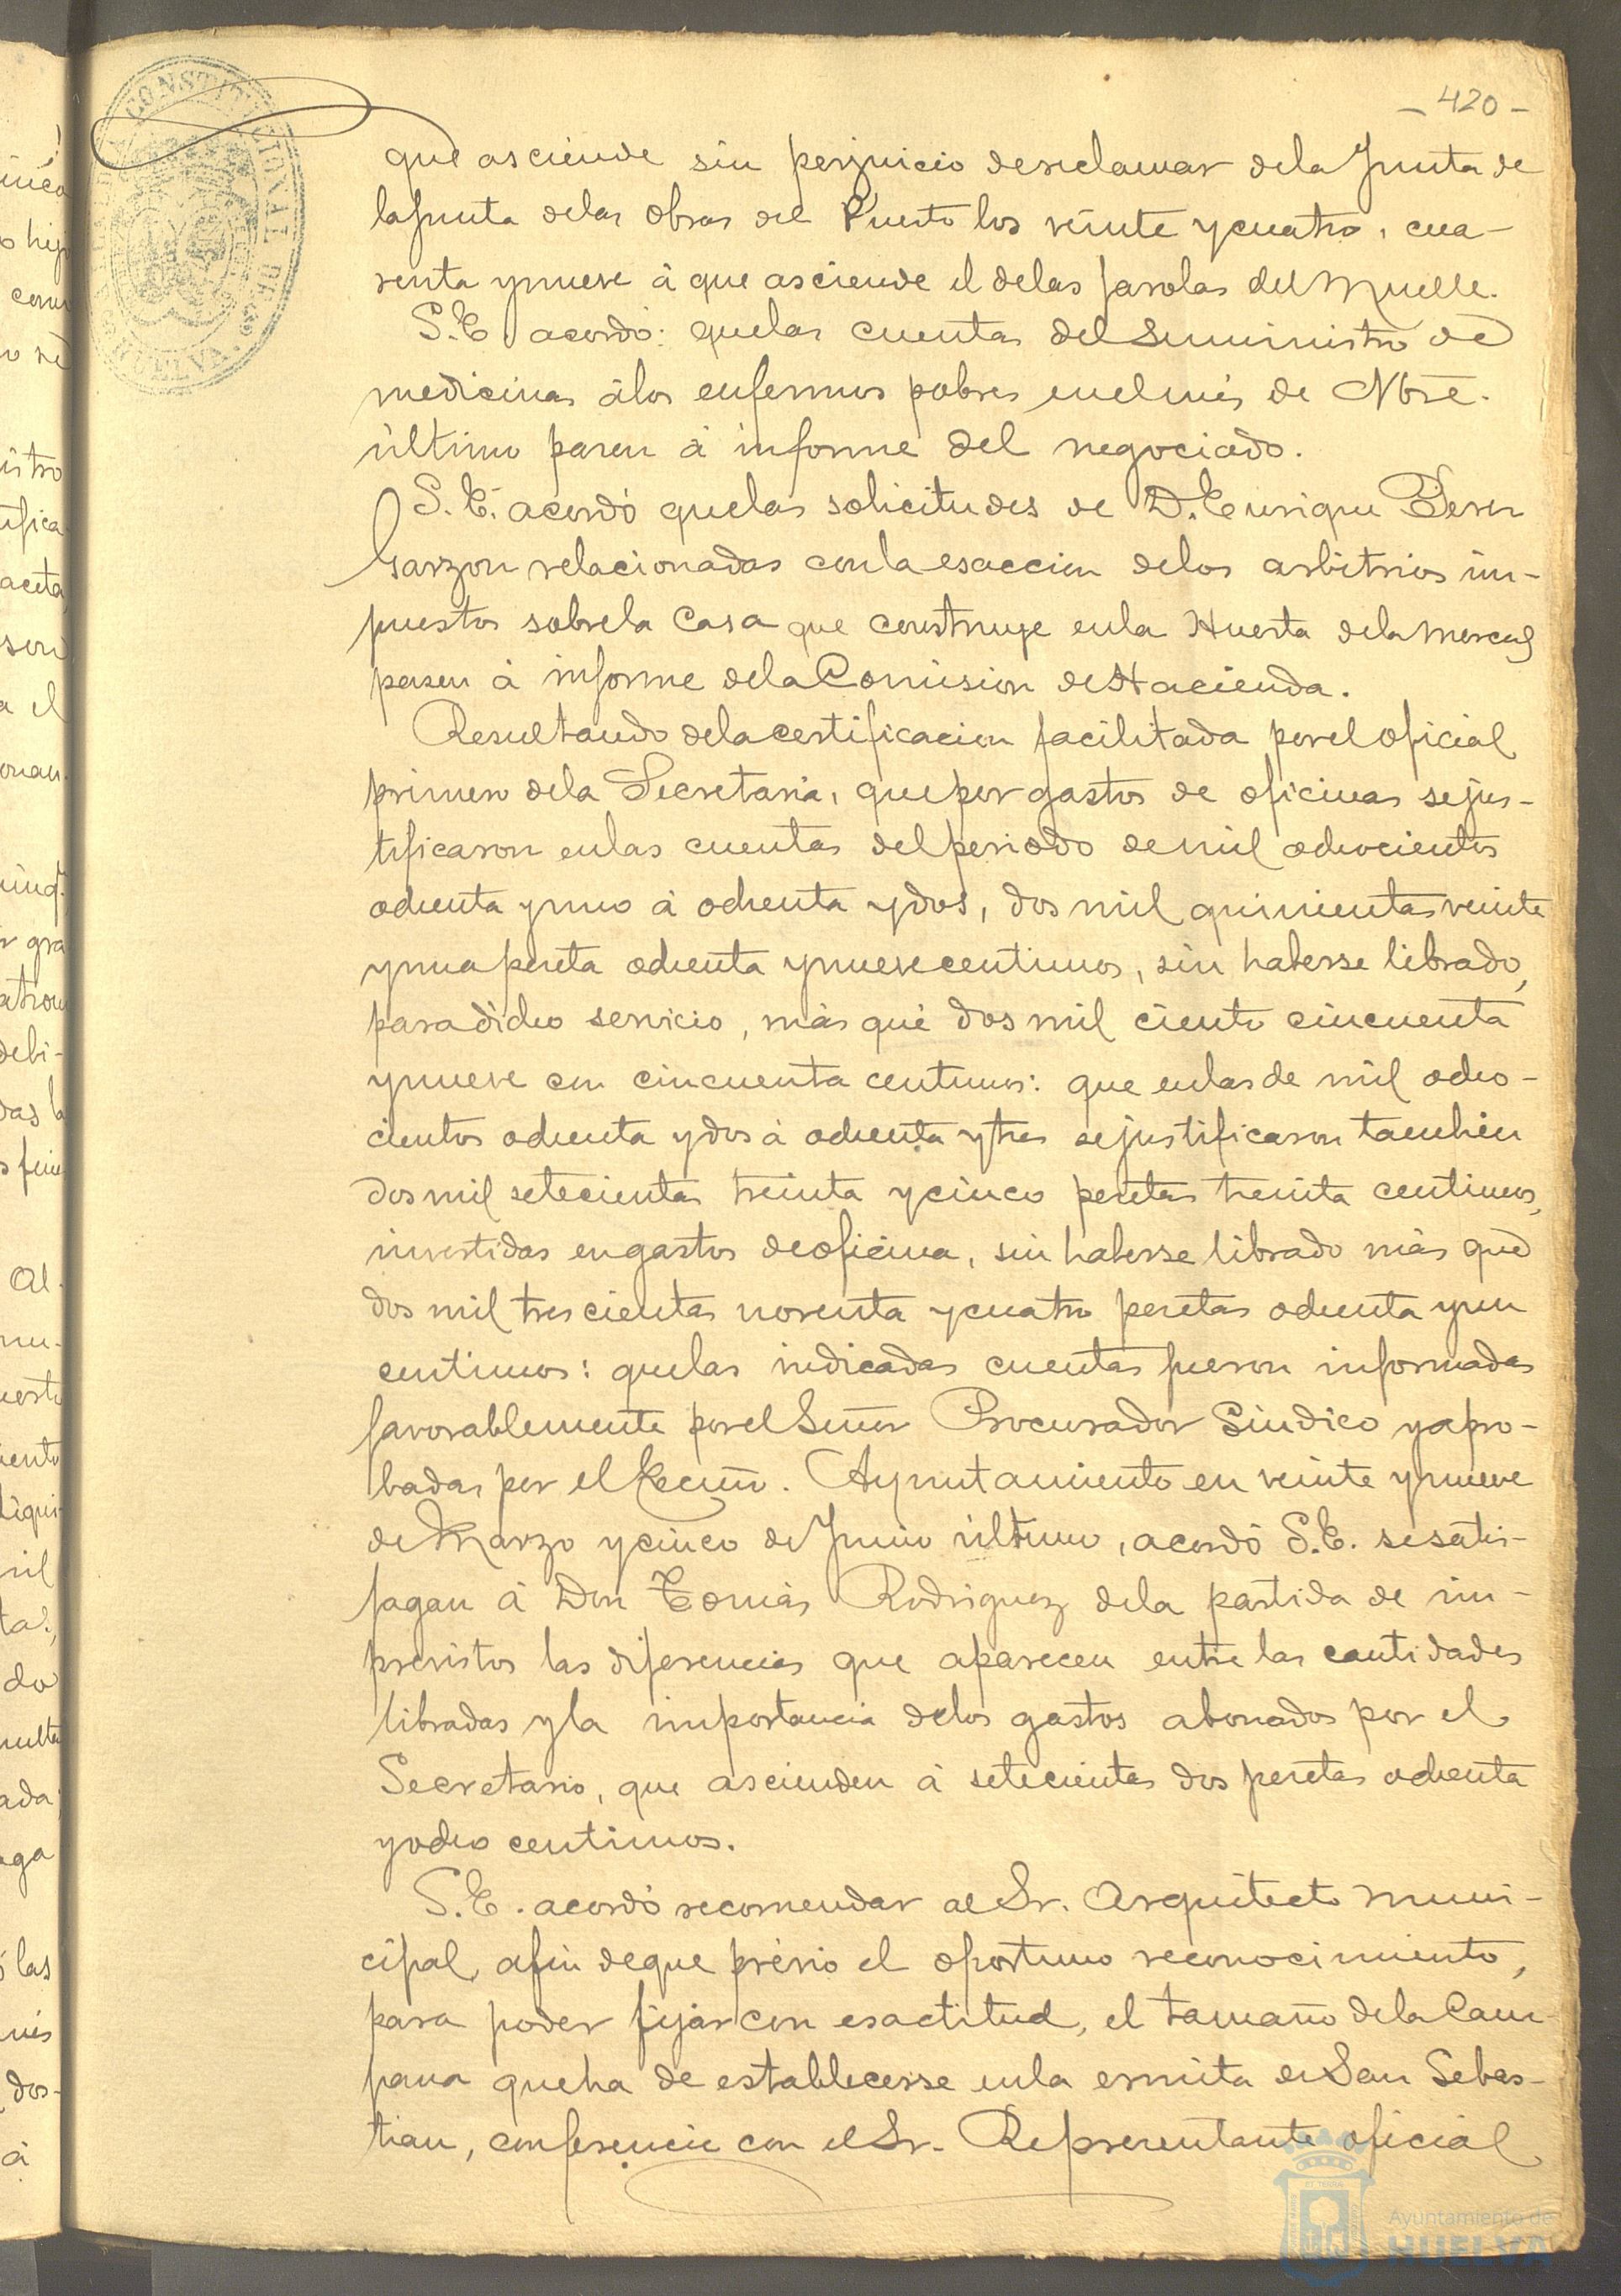 - 420 -
que asciende sin perjuicio de reclamar de la Junta de
la Junta de las obras del Puerto los veinte y cuatro, cua-
renta y nueve á que asciende el de las farolas del Muelle.
S. E. acordó: que las cuentas del suministro de
medicinas á los enfermos pobres en el mes de Nbre.
último pasen á informe del negociado.
S. E. acordó que las solicitudes de D. Enrique Perez
Garzon relacionadas con la esaccion de los arbitrios im-
puestos sobre la Casa que construye en la Huerta de la Merced
pasen á informe de la Comision de Hacienda.
Resultando de la certificacion facilitada por el oficial
primero de la Secretaria, que por gastos de oficinas se jus-
tificaron en las cuentas del periodo de mil ochocientos
ochenta y uno á ochenta y dos, dos mil quinientas veinte
y una peseta ochenta y nueve centimos, sin haberse librado,
para dicho servicio, más que dos mil ciento cincuenta
y nueve con cincuenta centimos: que en las de mil ocho-
cientos ochenta y dos á ochenta y tres se justificaron tambien
dos mil setecientas treinta y cinco pesetas treinta centimos,
invertidas en gastos de oficina, sin haberse librado más que
dos mil trescientas noventa y cuatro pesetas ochenta y un
centimos: que las indicadas cuentas fueron informadas
favorablemente por el Señor Procurador Sindico y apro-
badas por el Excmo. Ayuntamiento en veinte y nueve
de Marzo y cinco de Junio último, acordó S. E. se satis-
fagan á Don Tomás Rodriguez de la partida de im-
previstos las diferencias que aparecen entre las cantidades
libradas y la importancia de los gastos abonados por el
Secretario, que ascienden á setecientas dos pesetas ochenta
y ocho centimos.
S. E. acordó recomendar al Sr. Arquitecto muni-
cipal, afin de que prévio el oportuno reconocimiento,
para poder fijar con esactitud, el tamaño de la Cam-
pana que ha de establecerse en la ermita de San Sebas-
tian, conferencie con el Sr. Representante oficial
Ayuntamiento de
HUELVA